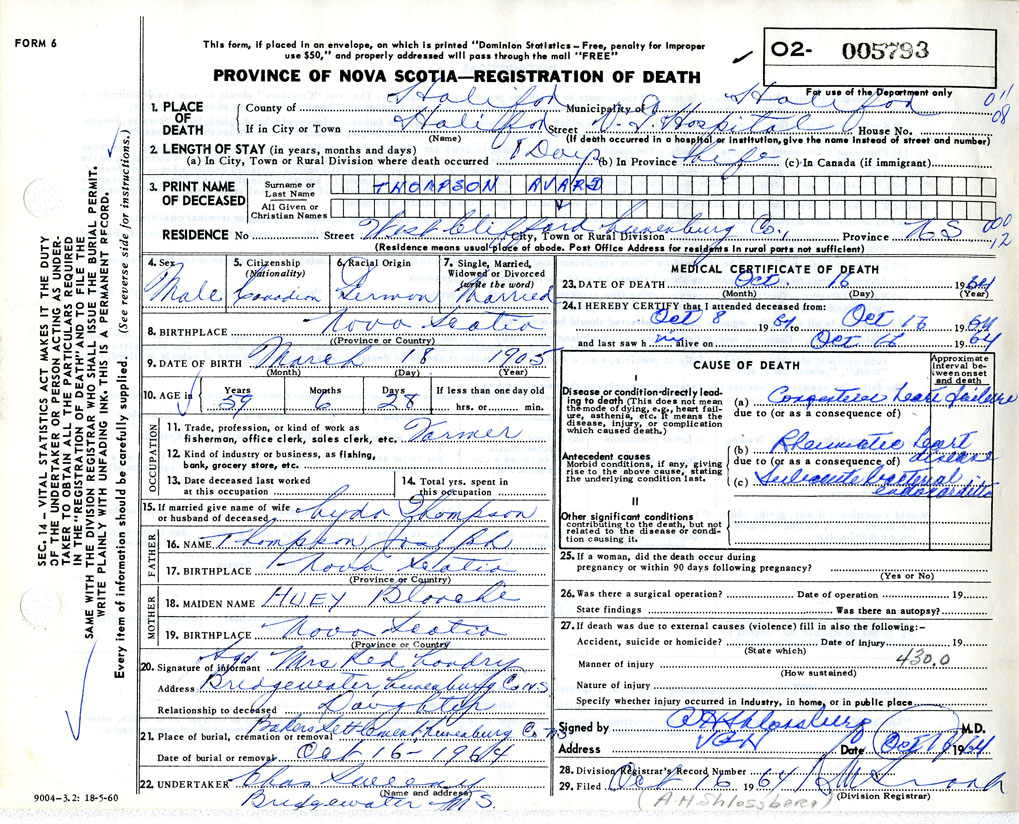 FORM 6
This form, if placed in an envelope, on which is printed "Dominion Statistics – Free, penalty for improper
use $50," and properly addressed will pass through the mail "FREE"
PROVINCE OF NOVA SCOTIA—REGISTRATION OF DEATH
O2- 005793
For use of the Department only
SEC. 14 – VITAL STATISTICS ACT MAKES IT THE DUTY
OF THE UNDERTAKER OR PERSON ACTING AS UNDER-
TAKER TO OBTAIN ALL THE PARTICULARS REQUIRED
IN THE "REGISTRATION OF DEATH" AND TO FILE THE
SAME WITH THE DIVISION REGISTRAR WHO SHALL ISSUE THE BURIAL PERMIT.
WRITE PLAINLY WITH UNFADING INK. THIS IS A PERMANENT RECORD.
Every item of information should be carefully supplied. (See reverse side for instructions.)
1. PLACE OF DEATH
County of Halifax Municipality of Halifax
011
08
If in City or Town Halifax Street V. G. Hospital House No.
(Name) (If death occurred in a hospital or institution, give the name instead of street and number)
2. LENGTH OF STAY (in years, months and days)
(a) In City, Town or Rural Division where death occurred 1 Day (b) In Province Life (c) In Canada (if immigrant)
3. PRINT NAME OF DECEASED
Surname or Last Name THOMPSON AVARD
All Given or Christian Names
RESIDENCE No Street West Clifford Lunenburg Co., City, Town or Rural Division Province N S
000
12
(Residence means usual place of abode. Post Office Address for residents in rural parts not sufficient)
4. Sex Male
5. Citizenship (Nationality) Canadian
6. Racial Origin German
7. Single, Married, Widowed or Divorced (write the word) Married
8. BIRTHPLACE Nova Scotia
(Province or Country)
9. DATE OF BIRTH March 18 1905
(Month) (Day) (Year)
10. AGE in Years 59 Months 6 Days 28 If less than one day old hrs. or min.
OCCUPATION
11. Trade, profession, or kind of work as
fisherman, office clerk, sales clerk, etc. Farmer
12. Kind of industry or business, as fishing,
bank, grocery store, etc.
13. Date deceased last worked
at this occupation
14. Total yrs. spent in
this occupation
15. If married give name of wife
or husband of deceased Lyda Thompson
FATHER
16. NAME Thompson Joseph
17. BIRTHPLACE Nova Scotia
(Province or Country)
MOTHER
18. MAIDEN NAME HUEY Blanche
19. BIRTHPLACE Nova Scotia
(Province or Country)
20. Signature of informant Sgd Mrs Red
Address Bridgewater Lunenburg Co N.S
Relationship to deceased Daughter
21. Place of burial, cremation or removal Bakers Settlement Lunenburg Co NS
Date of burial or removal Oct 16 - 1964
22. UNDERTAKER Chas Sweeny
(Name and address)
Bridgewater N.S.
9004–3.2: 18-5-60
MEDICAL CERTIFICATE OF DEATH
23. DATE OF DEATH Oct. 16 1964
(Month) (Day) (Year)
24. I HEREBY CERTIFY that I attended deceased from:
Oct 8 1964 to Oct 16 1964
and last saw h im alive on Oct 16 1964
CAUSE OF DEATH
Approximate interval between onset and death
I
Disease or condition directly leading to death (This does not mean the mode of dying, e.g., heart failure, asthenia, etc. It means the disease, injury, or complication which caused death.)
(a) Congestive heart failure
due to (or as a consequence of)
Antecedent causes
Morbid conditions, if any, giving rise to the above cause, stating the underlying condition last.
(b) Rheumatic heart disease
due to (or as a consequence of)
(c) Subacute bacterial endocarditis
II
Other significant conditions
contributing to the death, but not related to the disease or condition causing it.
25. If a woman, did the death occur during
pregnancy or within 90 days following pregnancy?
(Yes or No)
26. Was there a surgical operation? Date of operation 19
State findings Was there an autopsy?
27. If death was due to external causes (violence) fill in also the following:–
Accident, suicide or homicide? Date of injury 19
(State which)
Manner of injury 430.0
(How sustained)
Nature of injury
Specify whether injury occurred in industry, in home, or in public place
Signed by A H Shlossberg M.D.
Address VGH Date Oct 16 1964
28. Division Registrar's Record Number
29. Filed Oct 16 1964
(Division Registrar)
(A.H. Shlossberg)